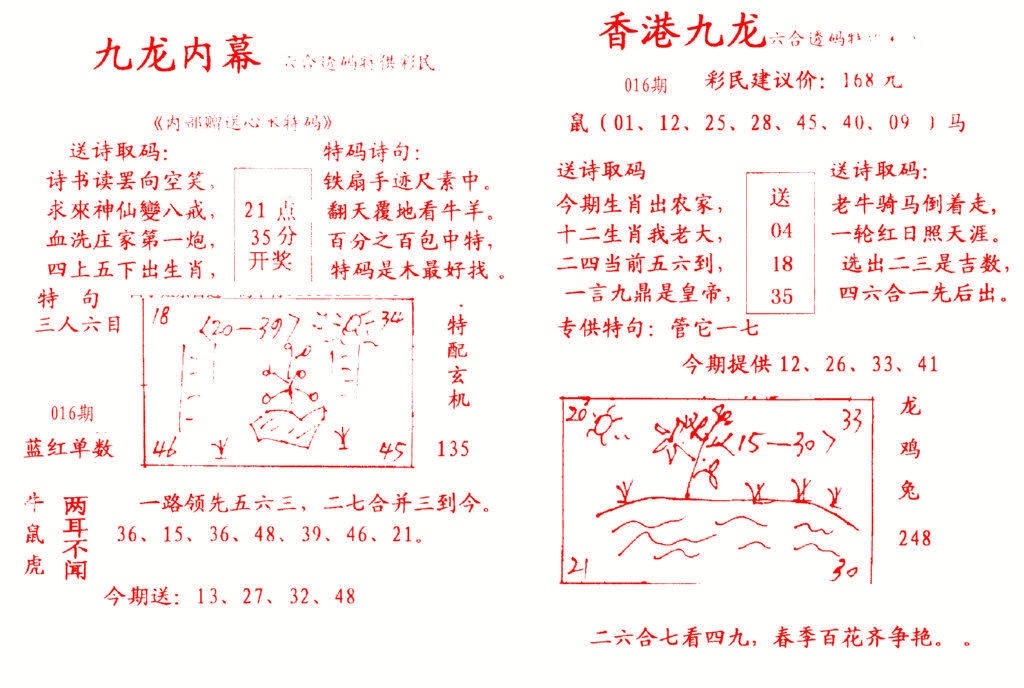 九龙内幕 六合透码特供彩民
《内部赠送心水特码》
送诗取码：
诗书读罢向空笑，
求來神仙變八戒，
血洗庄家第一炮，
四上五下出生肖，
21 点
35 分
开奖
特码诗句：
铁扇手迹尺素中。
翻天覆地看牛羊。
百分之百包中特，
特码是木最好找 。
特 句
三人六目
016期
蓝红单数
18
〈20—39〉
34
46
45
特配玄机
135
牛鼠虎
两耳不闻
一路领先五六三，二七合并三到今。
36、15、36、48、39、46、21。
今期送：13、27、32、48
香港九龙 六合透码特
016期 彩民建议价：168 元
鼠（01、12、25、28、45、40、09 ）马
送诗取码
今期生肖出农家，
十二生肖我老大，
二四当前五六到，
一言九鼎是皇帝，
送
04
18
35
送诗取码：
老牛骑马倒着走，
一轮红日照天涯。
选出二三是吉数，
四六合一先后出。
专供特句：管它一七
今期提供 12、26、33、41
20
33
〈15—30〉
21
30
龙
鸡
兔
248
二六合七看四九，春季百花齐争艳。 。